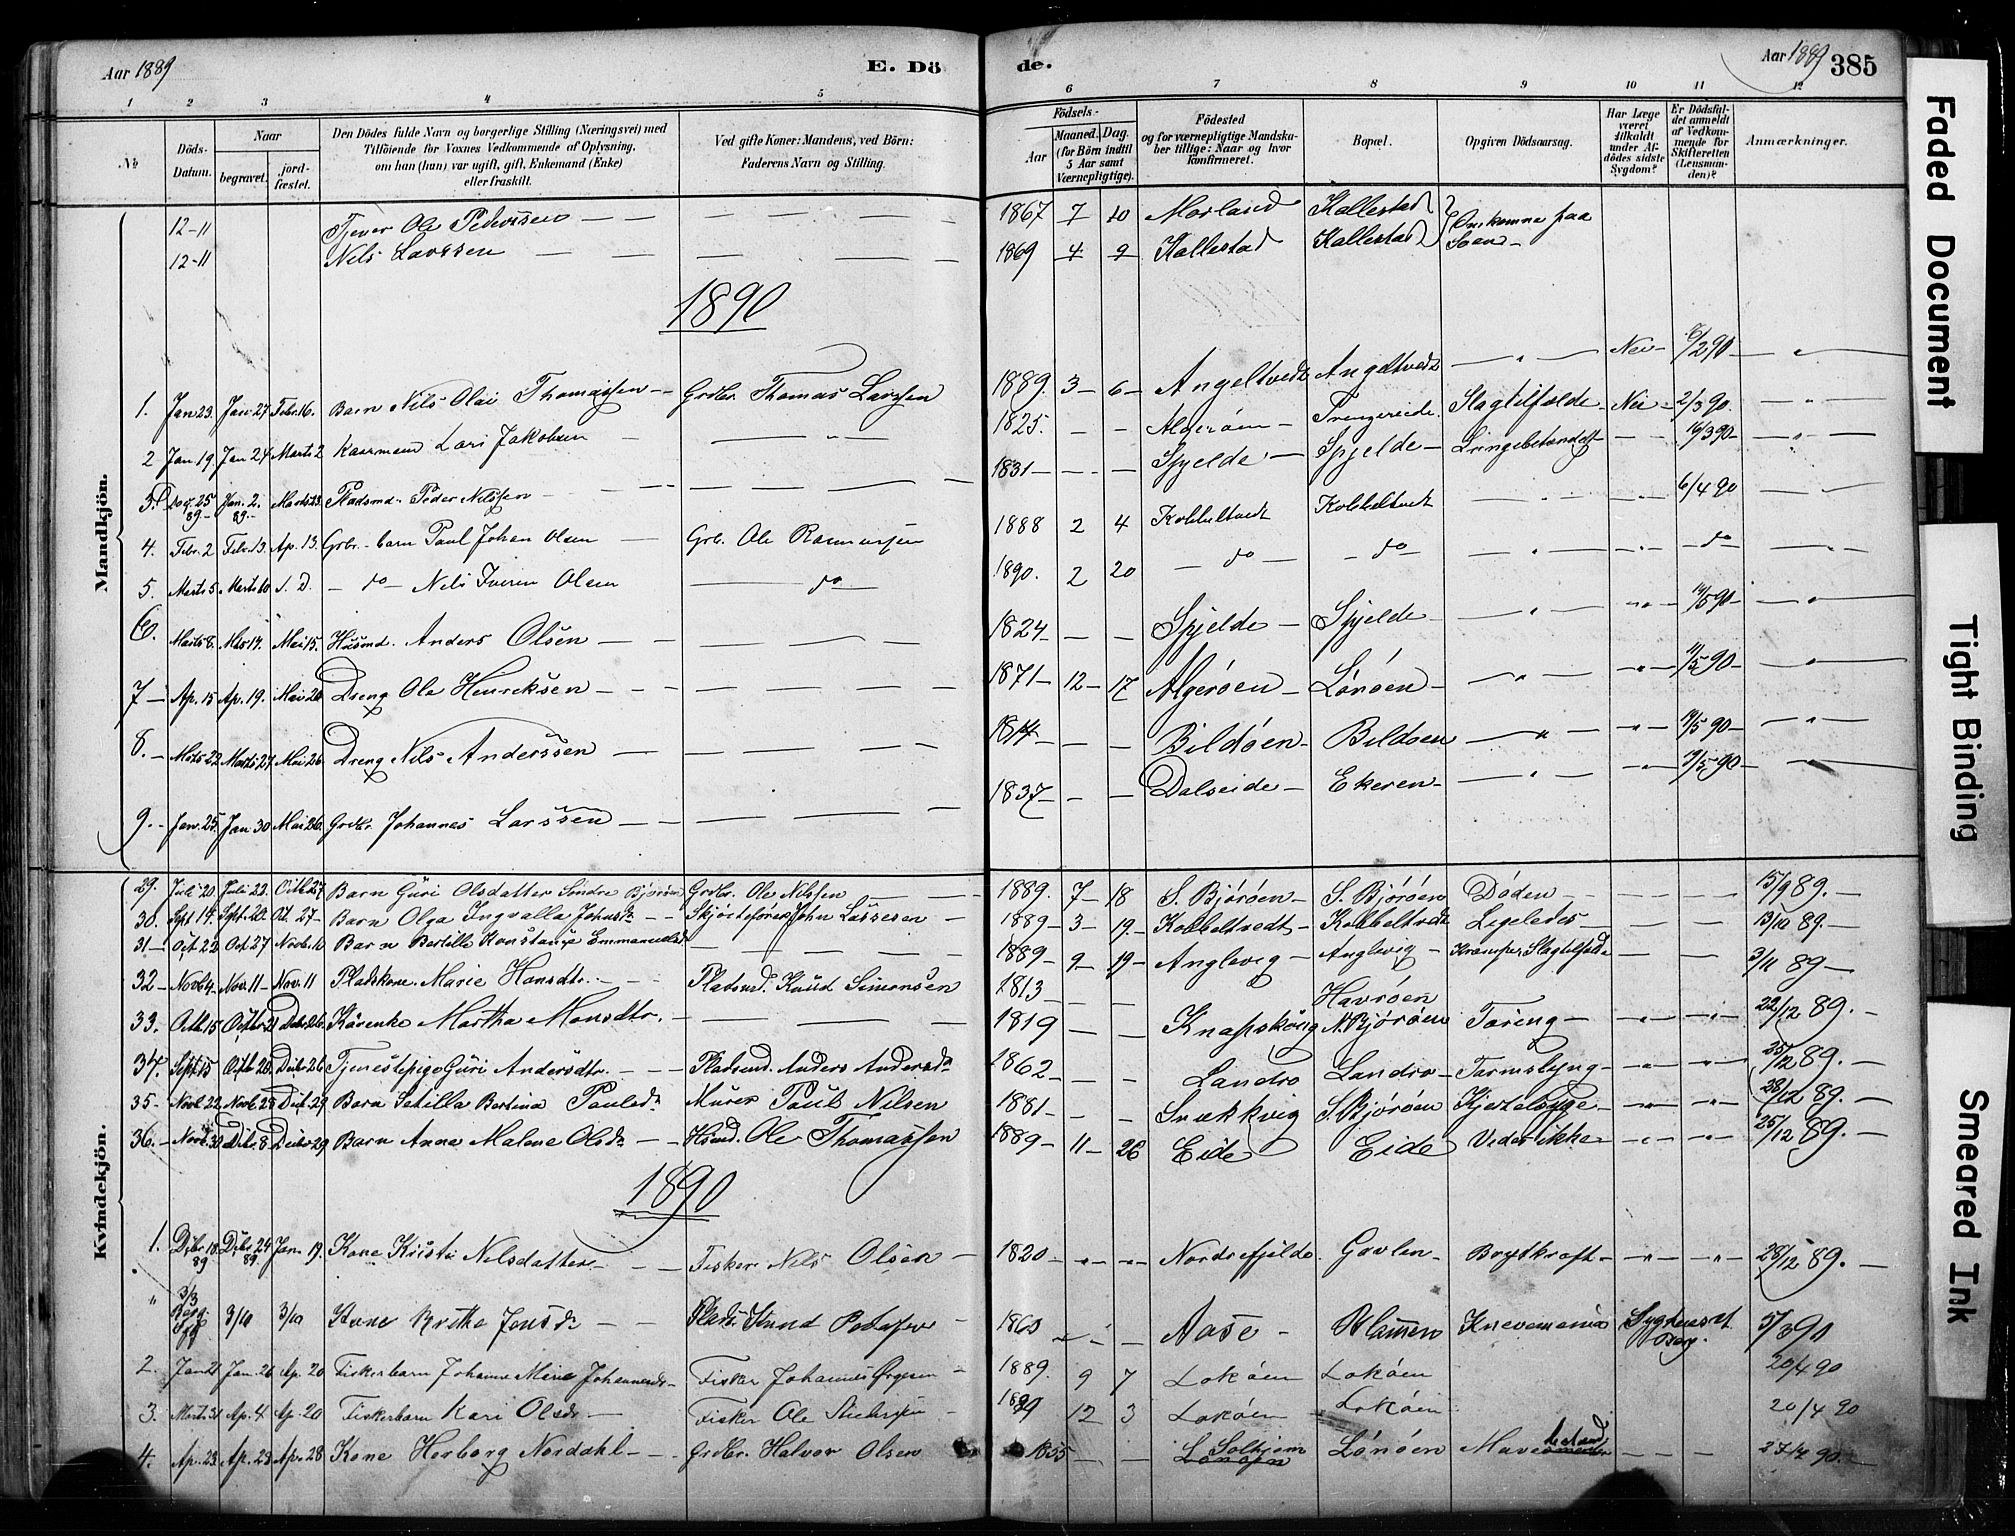 Aar 1889
E. Dö
de.
Aar 1889
385
1 2 3 4 5 6 7 8 9 10 11 12
№
Döds-Datum.
Naar
begravet.
jordfæstet.
Den Dödes fulde Navn og borgerlige Stilling (Næringsvei) med
Tilföiende for Voxnes Vedkommende af Oplysning,
om han (hun) var ugift, gift, Enkemand (Enke)
eller fraskilt.
Ved gifte Koner: Mandens, ved Börn:
Faderens Navn og Stilling.
Födsels-
Aar
Maaned. Dag.
(for Börn indtil
5 Aar samt
Værnepligtige).
Födested
og for værnepligtige Mandska-
ber tillige: Naar og hvor
konfirmeret.
Bopæl.
Opgiven Dödsaarsag.
Har Læge
været
tilkaldt
under Af-
dödes sidste
Sygdom?
Er Dödsfal-
det anmeldt
af Vedkom-
mende for
Skifteretten
(Lensman-
den)?
Anmærkninger.
Mandkjön.
12-11 Tjener Ole Pedersen 1867 7 10 Morland Kallestad Omkomne paa
12-11 Nils Larssen 1869 4 9 Kallestad Kallestad Søen
1890
1. Jan 23. Jan 27 Febr. 16. Barn Nils Olai Thomassen Grdbr. Thomas Larssen 1889. 3 6 Angeltvedt Angeltvedt " Nei 6/2 90 "
2 Jan 19. Jan 24 Marts 2 Lars Jakobsen " 1825. Algeröen Slagtilfælde Nei 2/3 90. "
3. Jan. 2. 89. Pladsmd. Peder Nilssen 1831 Spjelde Spjelde Lungebetændelse 16/3 90 "
4. Febr. 2 Febr. 13. Ap. 13. Grbr. barn Paul Johan Olsen Grb. Ole Rasmussen 1888 2 4 Kobbeltvedt Kobbeltvedt " 6/4 90
5. Marts 5 Marts 10 s. D. do Nils Iveren Olsen do 1890. 2 20 do do " do "
6. Marts 8. Mai 15. Husmd. Anders Olsen 1824 Spjelde Spjelde " "
7 Ap. 15 Ap. 19. Mai 26 Dreng Ole Henriksen 1871 12 17 Algeröen Lönöen " " "
8. Marts 22 Marts 27 Mai 26 Dreng Nils Anderssen Bildöen Bildöen " " "
9. Jan. 25. Jan 30 Mai 26. Grdbr. Johannes Larssen 1837 Dalseide Ekeren " " "
Kvindekjön.
29. Juli 20 Juli 22. Octb 27 Barn Guri Olsdatter Söndre Björöen Grdbr. Ole Nilssen 1889. 7 18 S. Björöen S. Björöen Döden 15/9 89.
30. Sept. 14 Sept. 20. Oct. 27 Barn Olga Ingvalla Johnsdr Skjöitefører John Lassesen 1889 3 19 Kobbeltvedt Kobbeltvedt Ligeledes 13/10 89.
31 Oct. 22 Oct. 27 Novbr. 10 Barn Bertille Konstanse Emmanuelsdr 1889 9 19 Anglevig Anglevig Krampe Slagtilfælde 3/11 89
32 Novb 4 Nov. 11 Nov. 11 Pladskone. Marie Hansdtr. Pladsmd. Knud Simonsen 1813 Havröen
33. Octb. 15 Octbr 21 Decbr. 26. Kårenke Martha Monsdtr. 1819 Knapskog N. Björöen Tæring " " 22/12 89.
34. Sept. 15 Octb 20. Decbr 26 Tjenestepige Guri Andersdtr. Pladsmd. Anders Andersen 1862 Landro Landro Tarmslyng " " 25/12 89.
35 Novb. 22 Novbr 28 Dec. 29 Barn Setilla Bertina Paulsdr Murer Paul Nilsen 1881 Snekkvig S. Björöen Kjertelsyge " " 28/12 89.
36. Novb. 30 Dcbr. 8 Decbr 29 Barn Anne Malene Olsdr Husmd. Ole Thomassen 1889 11 26 Eide Eide Vides ikke " " 25/12 89.
1890
1. Dcbr. 18. 89 Dcbr 24 89. Jan. 19. Kone Kristi Nilsdatter Fisker Nils Olsen 1820 " " Nordrefjelde Govlen Brystkræft " " 28/12 89.
" 3/3 3/10 3/10 Kone Brithe Jensdr Pladsmd. Knud 1860 Aase Knevemania 5/3 90
2. Jan 21 Jan. 26 Ap. 20 Fiskerbarn Johanne Marie Johannesdr Fisker Johannes 1889. 9 7 Loköen Loköen 20/4 90
3. Marts 31 Ap. 4 Ap. 20 Fiskerbarn Kari Olsdr Fisker Ole 12 3 Loköen Loköen 20/4 90
4. Ap. 23 Ap. 23 Apr. 28 Kone Herborg Nordahl Grdbr. Halvor Olsen 1855 Solheim Lönöen Lönöen Mave 27/4 90.
Faded Document
Tight Binding
Smeared Ink